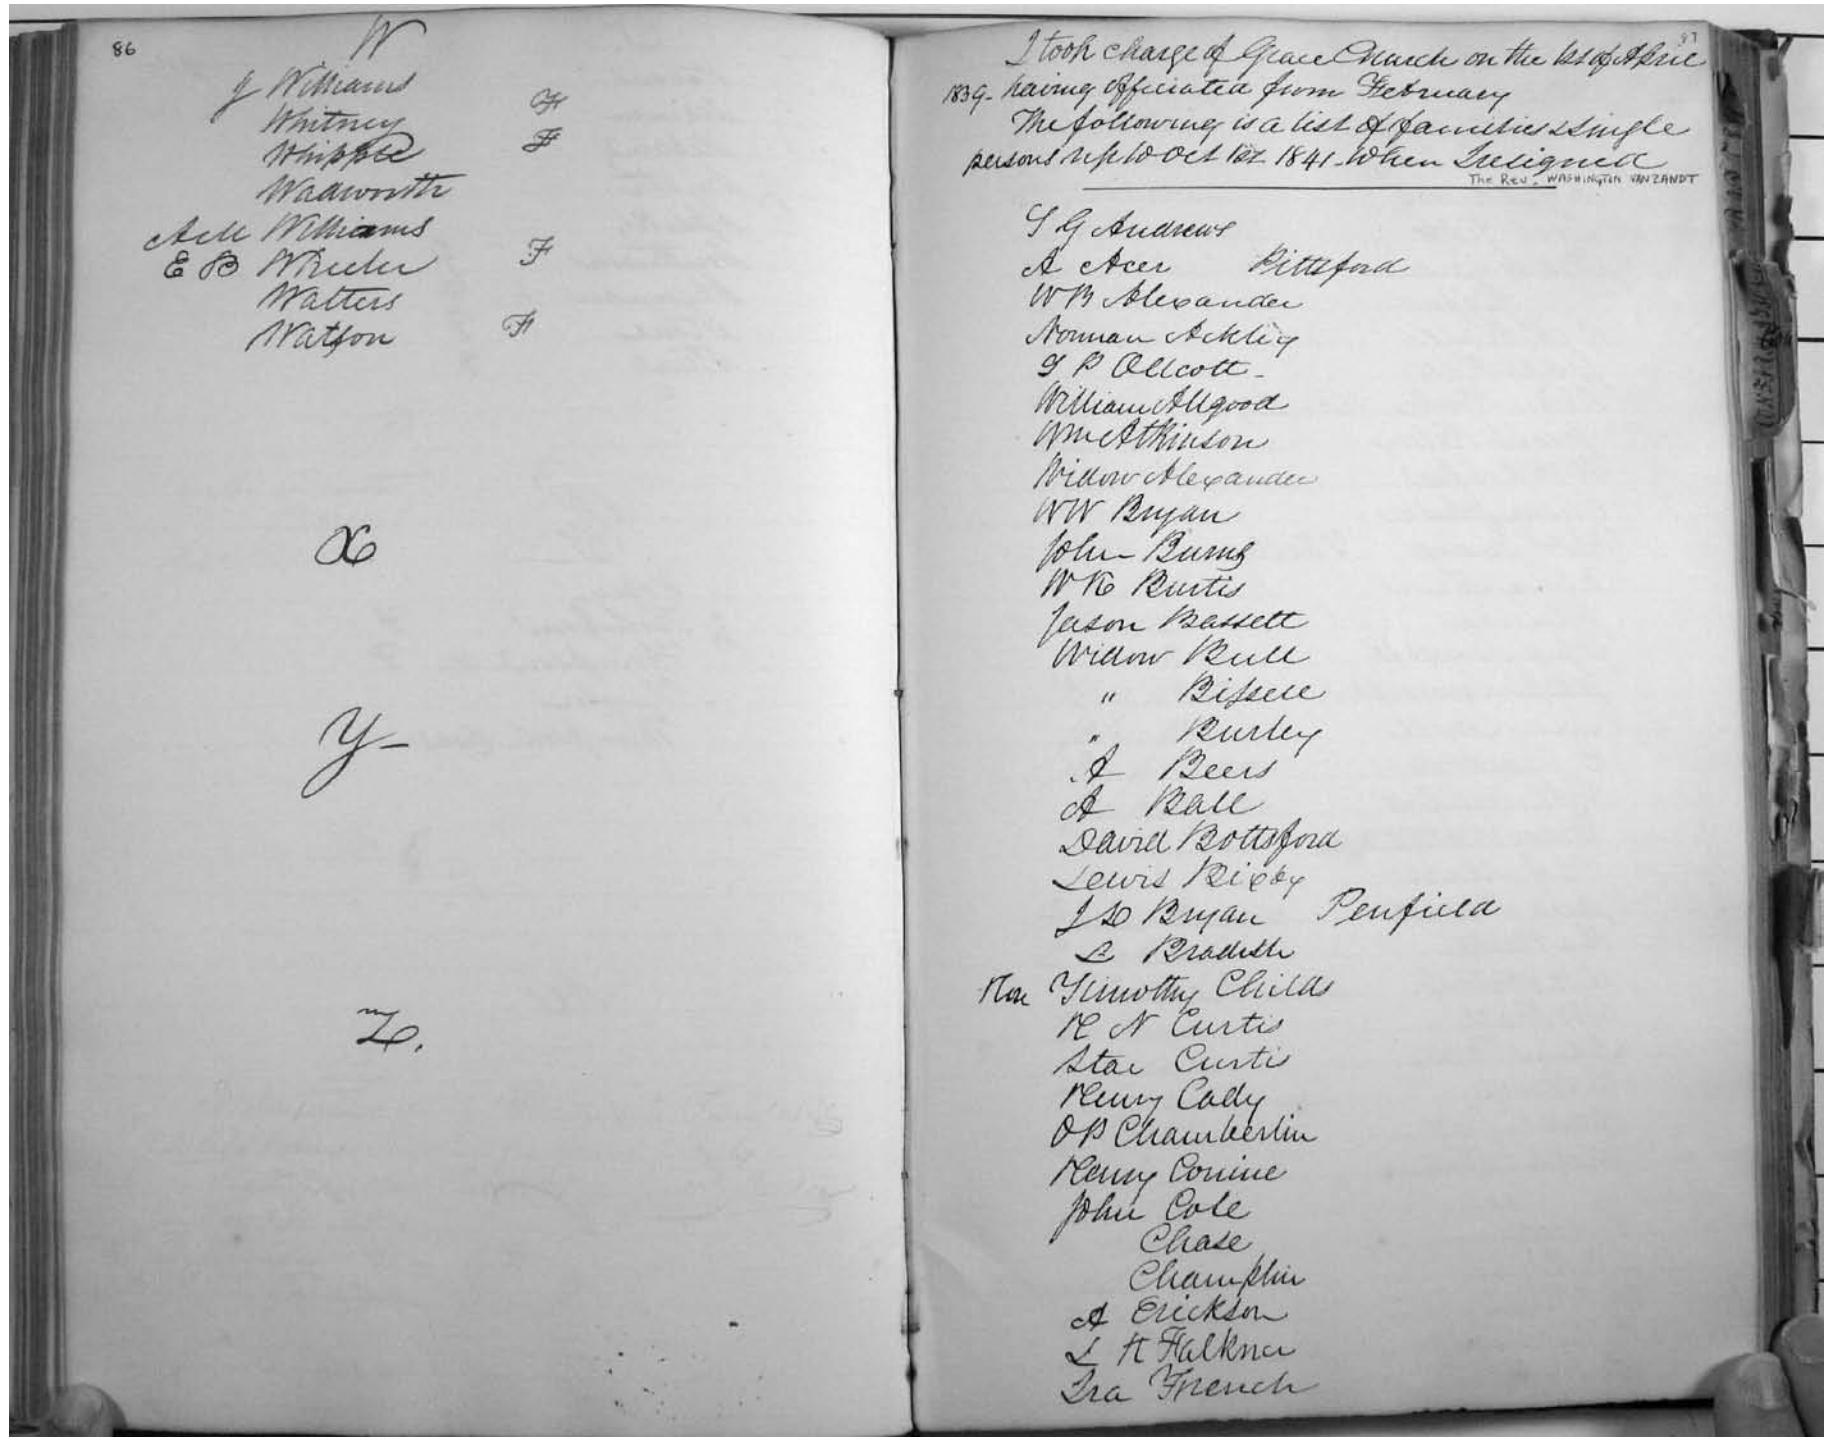 86
W
J Williams
Whitney F
Whipple F
Wadworth
A M Williams
E B Wheeler F
Walters
Watson F
X
Y-
Z.
87
I took charge of Grace Church on the 1st of April
1839- having officiated from February
The following is a list of families & single
persons up to Oct 1st 1841- When I resigned
The Rev. WASHINGTON VANZANDT
S G Andrews
A Acer Pittsford
W B Alexander
Norman Ackley
S P Allcott-
William Allgood
Wm Atkinson
Widow Alexander
W W Bryan
John Burns
W K Burtis
Jason Bassett
Widow Bull
" Bissell
" Burley
A Beers
A Ball
David Bottsford
Lewis Bixby
J D Bryan Penfield
L Bradish
Hon Timothy Childs
H N Curtis
Star Curtis
Henry Cady
O P Chamberlin
Henry Conine
John Cole
Chase
Champlin
A Erickson
L K Falkner
Ira French